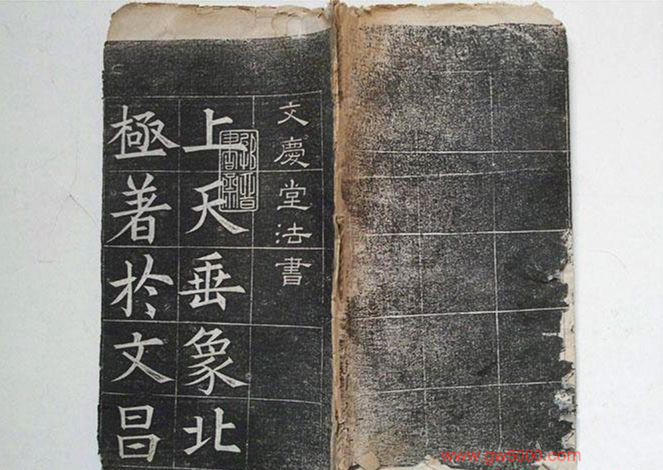 文慶堂法書
上天垂象北
極著於文昌
www.gw8000.com